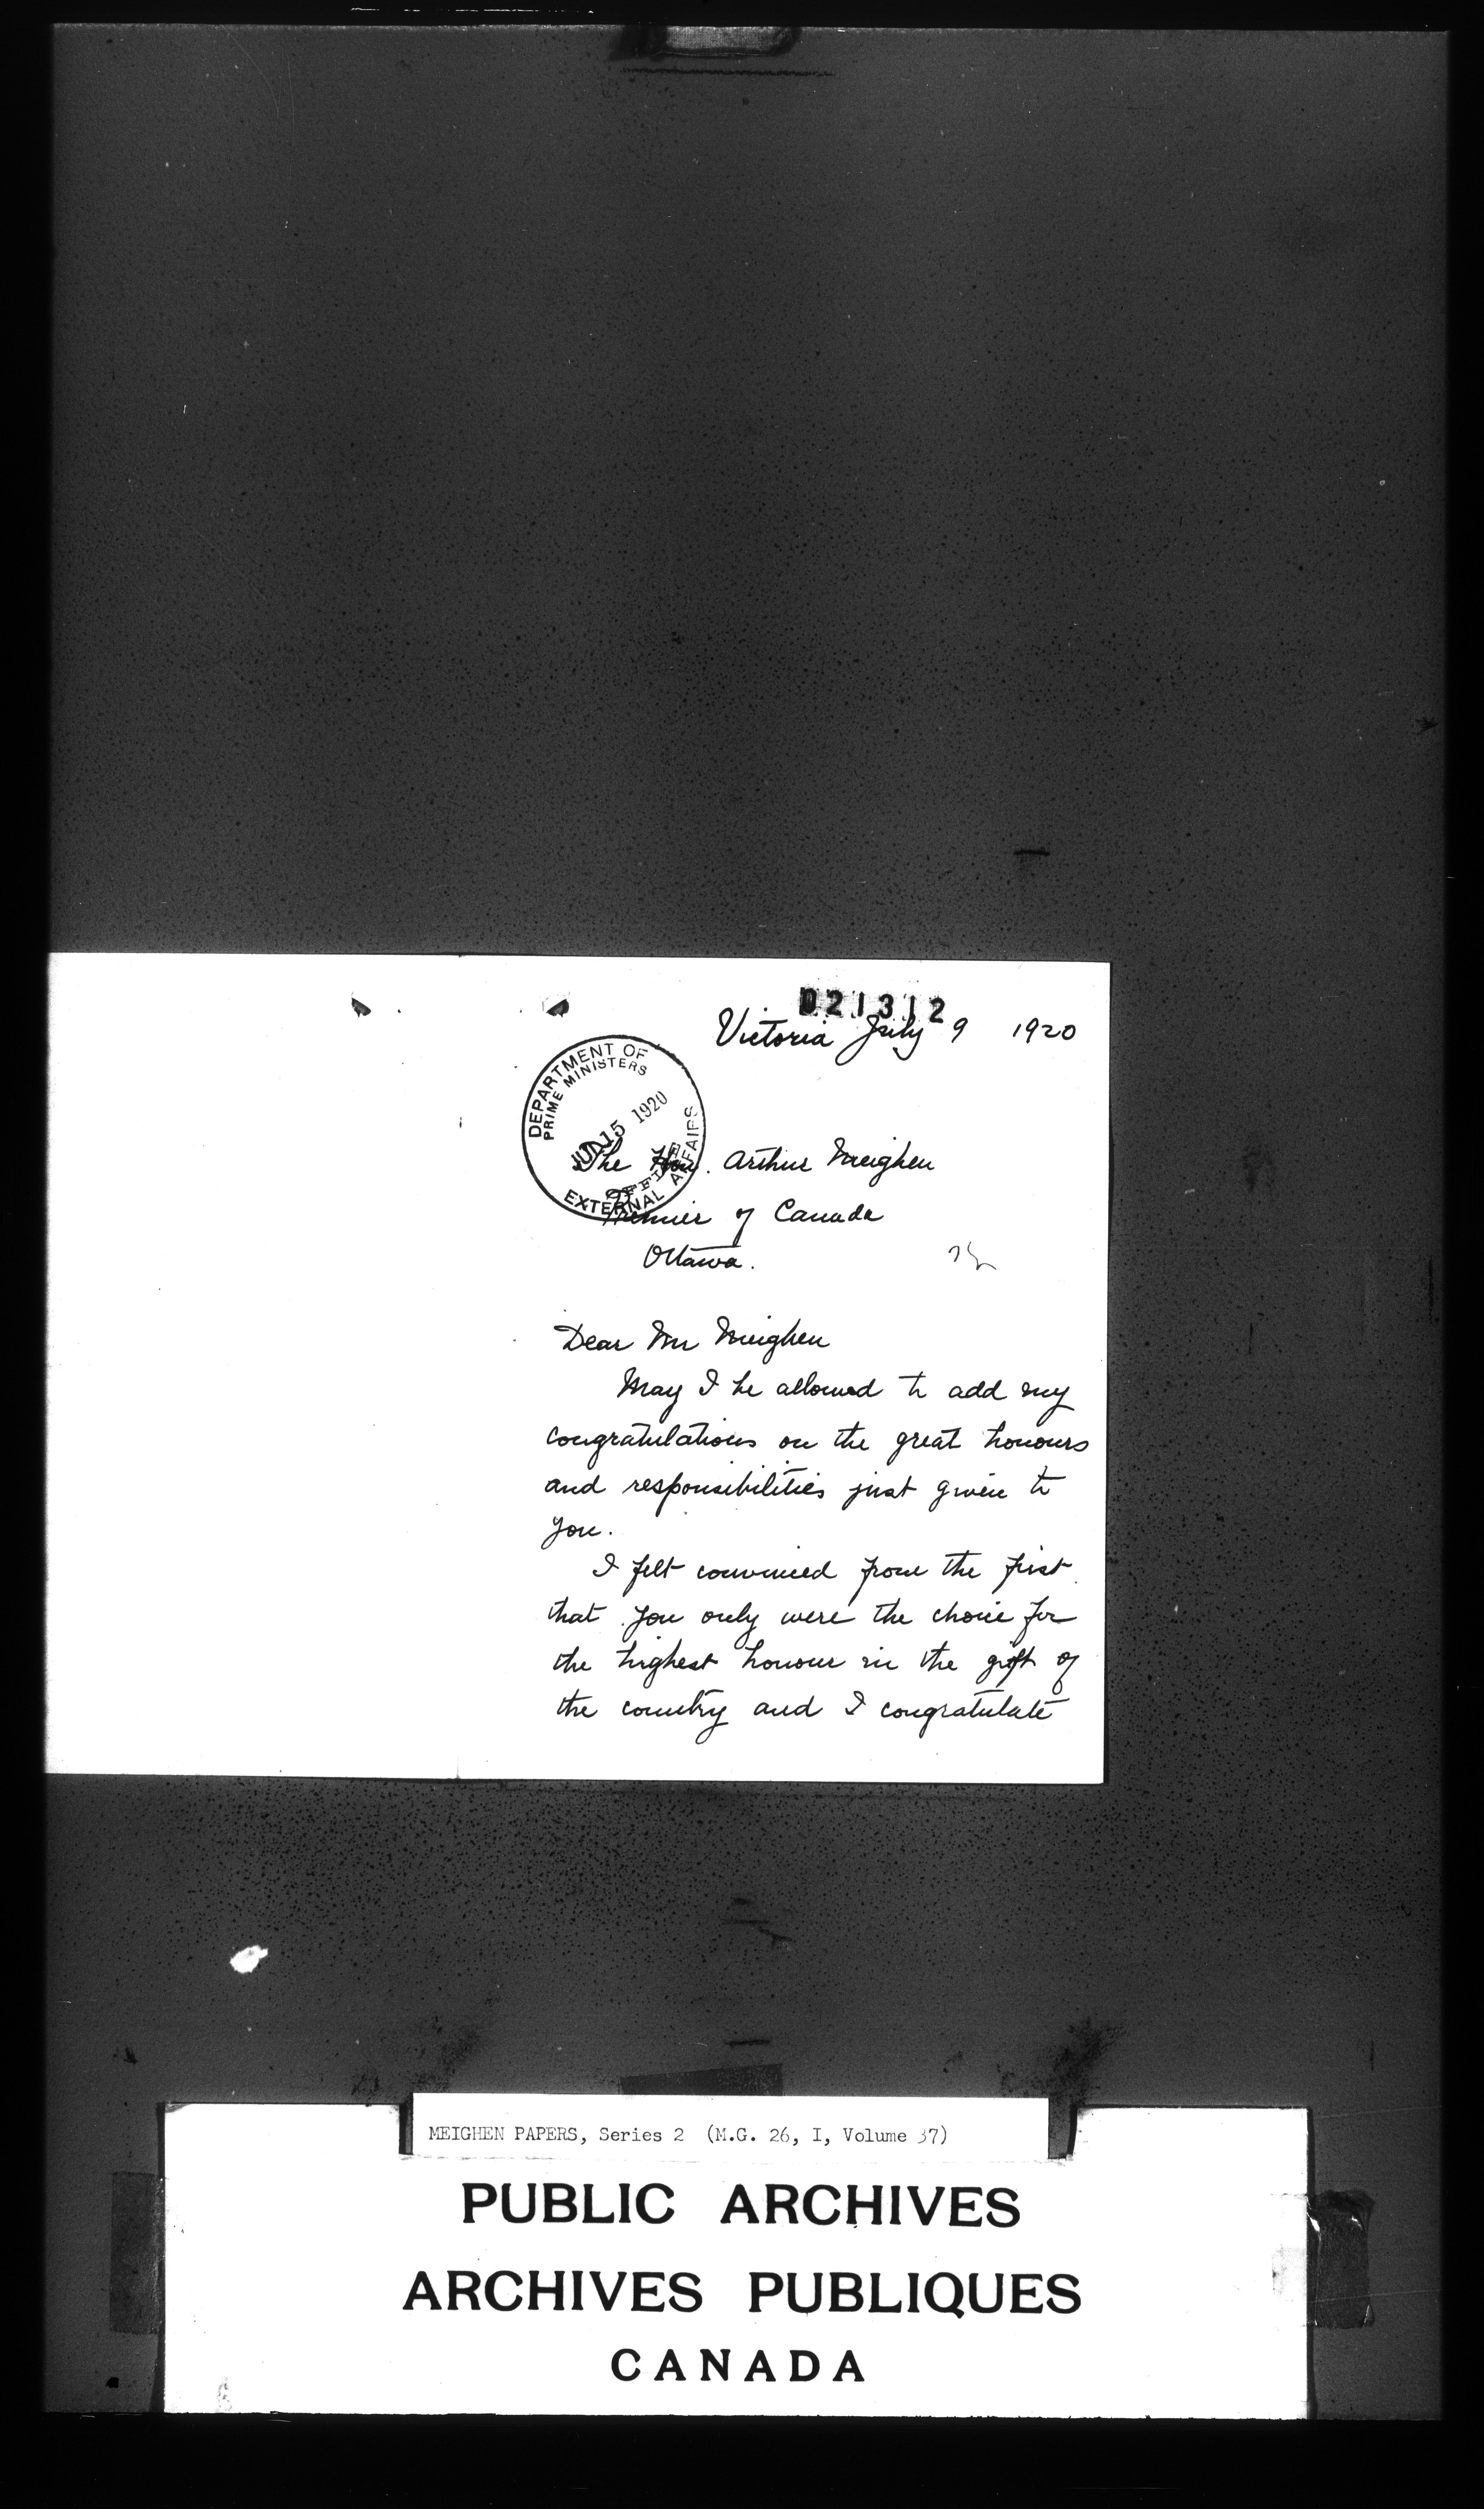 021312
Victoria July 9 1920
DEPARTMENT OF
PRIME MINISTERS
15 1920
OFFICE
EXTERNAL AFFAIRS
The Hon. Arthur Meighen
Premier of Canada
Ottawa.
Dear Mr Meighen
May I be allowed to add my
congratulations on the great honours
and responsibilities just given to
you.
I felt convinced from the first
that you only were the choice for
the highest honour in the gift of
the country and I congratulate
MEIGHEN PAPERS, Series 2 (M.G. 26, I, Volume 37)
PUBLIC ARCHIVES
ARCHIVES PUBLIQUES
CANADA